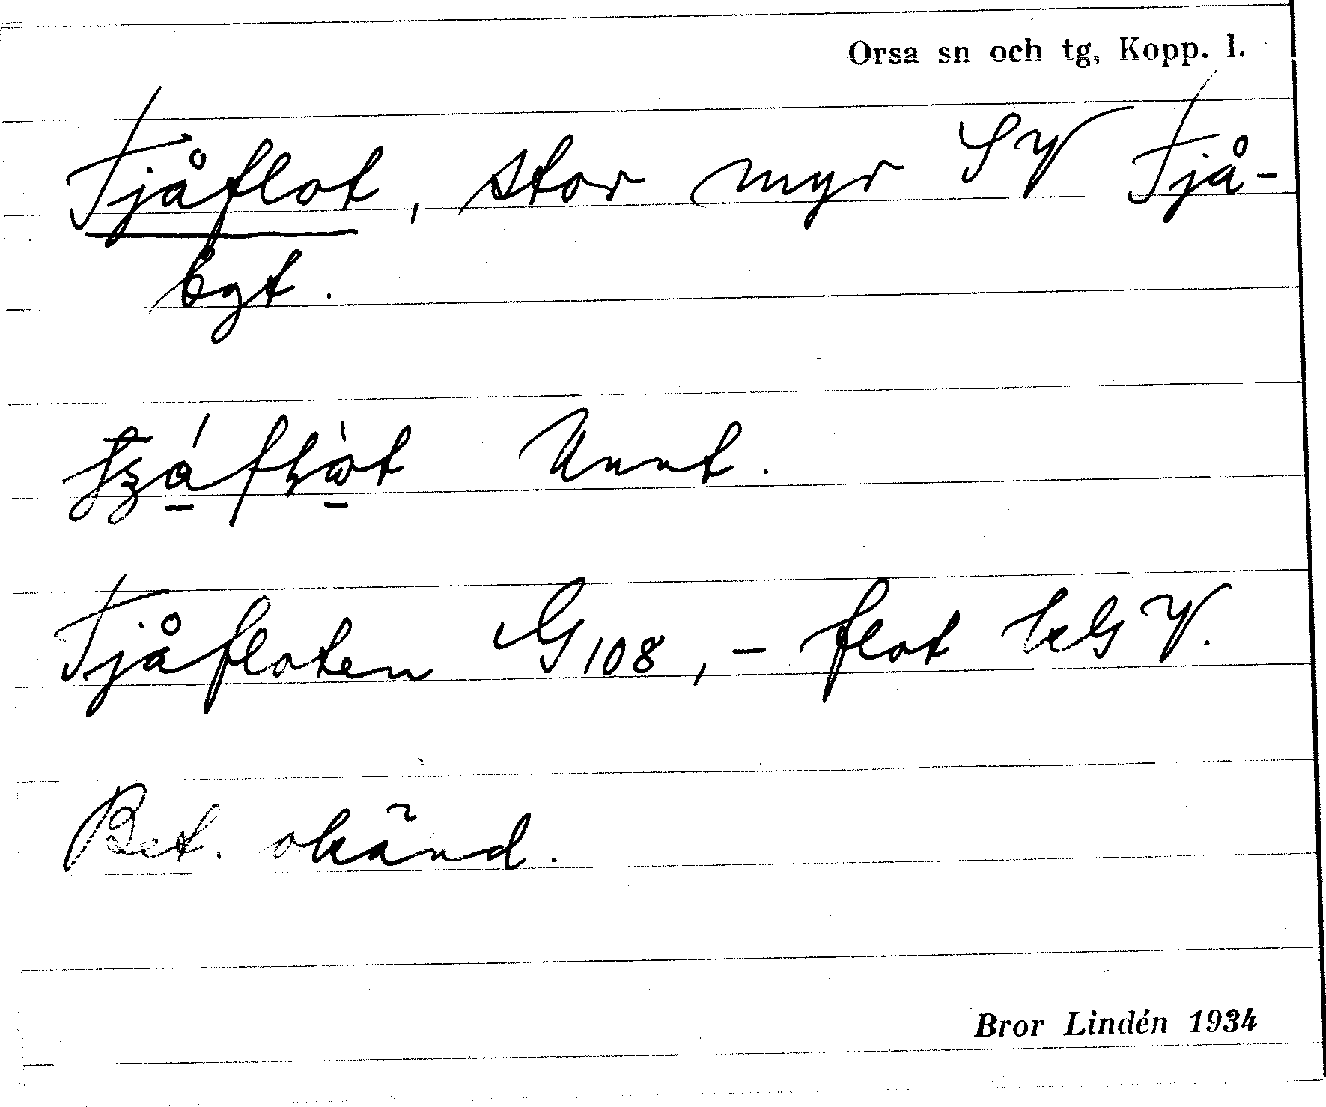 Orsa sn och tg, Kopp. l.
Fjåflot, stor myr SV Fjå-
bgt.
Unnt.
Fjåfloten G 108, - flot kG V.
Bet. okänd.
Bror Lindén 1934